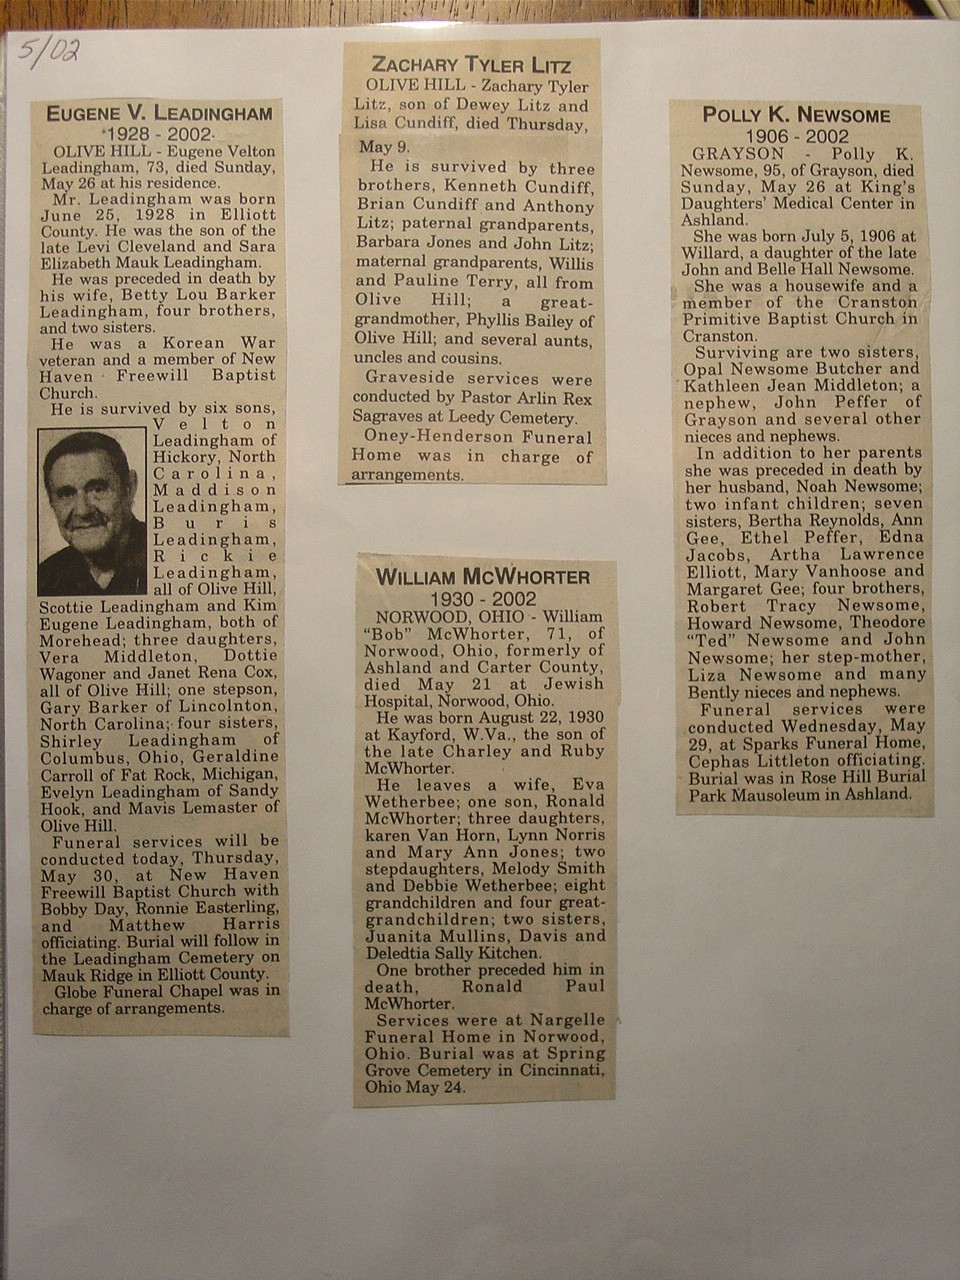 5/02
EUGENE V. LEADINGHAM
1928 - 2002
OLIVE HILL - Eugene Velton
Leadingham, 73, died Sunday,
May 26 at his residence.
Mr. Leadingham was born
June 25, 1928 in Elliott
County. He was the son of the
late Levi Cleveland and Sara
Elizabeth Mauk Leadingham.
He was preceded in death by
his wife, Betty Lou Barker
Leadingham, four brothers,
and two sisters.
He was a Korean War
veteran and a member of New
Haven Freewill Baptist
Church.
He is survived by six sons,
Velton
Leadingham of
Hickory, North
Carolina,
Maddison
Leadingham,
Buris
Leadingham,
Rickie
Leadingham,
all of Olive Hill,
Scottie Leadingham and Kim
Eugene Leadingham, both of
Morehead; three daughters,
Vera Middleton, Dottie
Wagoner and Janet Rena Cox,
all of Olive Hill; one stepson,
Gary Barker of Lincolnton,
North Carolina; four sisters,
Shirley Leadingham of
Columbus, Ohio, Geraldine
Carroll of Fat Rock, Michigan,
Evelyn Leadingham of Sandy
Hook, and Mavis Lemaster of
Olive Hill.
Funeral services will be
conducted today, Thursday,
May 30, at New Haven
Freewill Baptist Church with
Bobby Day, Ronnie Easterling,
and Matthew Harris
officiating. Burial will follow in
the Leadingham Cemetery on
Mauk Ridge in Elliott County.
Globe Funeral Chapel was in
charge of arrangements.
ZACHARY TYLER LITZ
OLIVE HILL - Zachary Tyler
Litz, son of Dewey Litz and
Lisa Cundiff, died Thursday,
May 9.
He is survived by three
brothers, Kenneth Cundiff,
Brian Cundiff and Anthony
Litz; paternal grandparents,
Barbara Jones and John Litz;
maternal grandparents, Willis
and Pauline Terry, all from
Olive Hill; a great-
grandmother, Phyllis Bailey of
Olive Hill; and several aunts,
uncles and cousins.
Graveside services were
conducted by Pastor Arlin Rex
Sagraves at Leedy Cemetery.
Oney-Henderson Funeral
Home was in charge of
arrangements.
WILLIAM MCWHORTER
1930 - 2002
NORWOOD, OHIO - William
“Bob” McWhorter, 71, of
Norwood, Ohio, formerly of
Ashland and Carter County,
died May 21 at Jewish
Hospital, Norwood, Ohio.
He was born August 22, 1930
at Kayford, W.Va., the son of
the late Charley and Ruby
McWhorter.
He leaves a wife, Eva
Wetherbee; one son, Ronald
McWhorter; three daughters,
karen Van Horn, Lynn Norris
and Mary Ann Jones; two
stepdaughters, Melody Smith
and Debbie Wetherbee; eight
grandchildren and four great-
grandchildren; two sisters,
Juanita Mullins, Davis and
Deledtia Sally Kitchen.
One brother preceded him in
death, Ronald Paul
McWhorter.
Services were at Nargelle
Funeral Home in Norwood,
Ohio. Burial was at Spring
Grove Cemetery in Cincinnati,
Ohio May 24.
POLLY K. NEWSOME
1906 - 2002
GRAYSON - Polly K.
Newsome, 95, of Grayson, died
Sunday, May 26 at King's
Daughters' Medical Center in
Ashland.
She was born July 5, 1906 at
Willard, a daughter of the late
John and Belle Hall Newsome.
She was a housewife and a
member of the Cranston
Primitive Baptist Church in
Cranston.
Surviving are two sisters,
Opal Newsome Butcher and
Kathleen Jean Middleton; a
nephew, John Peffer of
Grayson and several other
nieces and nephews.
In addition to her parents
she was preceded in death by
her husband, Noah Newsome;
two infant children; seven
sisters, Bertha Reynolds, Ann
Gee, Ethel Peffer, Edna
Jacobs, Artha Lawrence
Elliott, Mary Vanhoose and
Margaret Gee; four brothers,
Robert Tracy Newsome,
Howard Newsome, Theodore
“Ted” Newsome and John
Newsome; her step-mother,
Liza Newsome and many
Bently nieces and nephews.
Funeral services were
conducted Wednesday, May
29, at Sparks Funeral Home,
Cephas Littleton officiating.
Burial was in Rose Hill Burial
Park Mausoleum in Ashland.